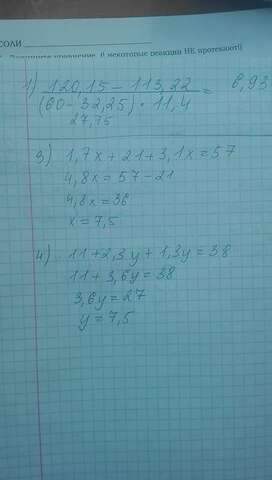 СОЛИ
некоторые реакции НЕ протекают!)
1) 120,15 - 113,22 = 6,93
(60 - 32,25) · 11,4
27,75
3) 1,7x + 21 + 3,1x = 57
4,8x = 57 - 21
4,8x = 36
x = 7,5
4) 11 + 2,3y + 1,3y = 38
11 + 3,6y = 38
3,6y = 27
y = 7,5